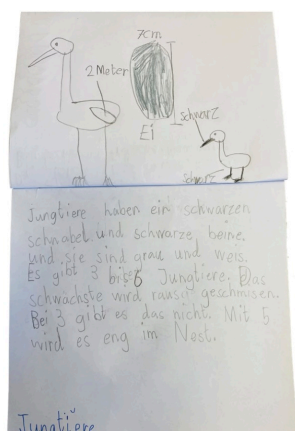 7cm
2 Meter
schwarz
Ei
schwarz
Jungtiere haben ein schwarzen
schnabel und schwarze beine.
und sie sind grau und weis.
Es gibt 3 bis 6 Jungtiere. Das
schwächste wird rausgeschmisen.
Bei 3 gibt es das nicht. Mit 5
wird es eng im Nest.
Jungtiere